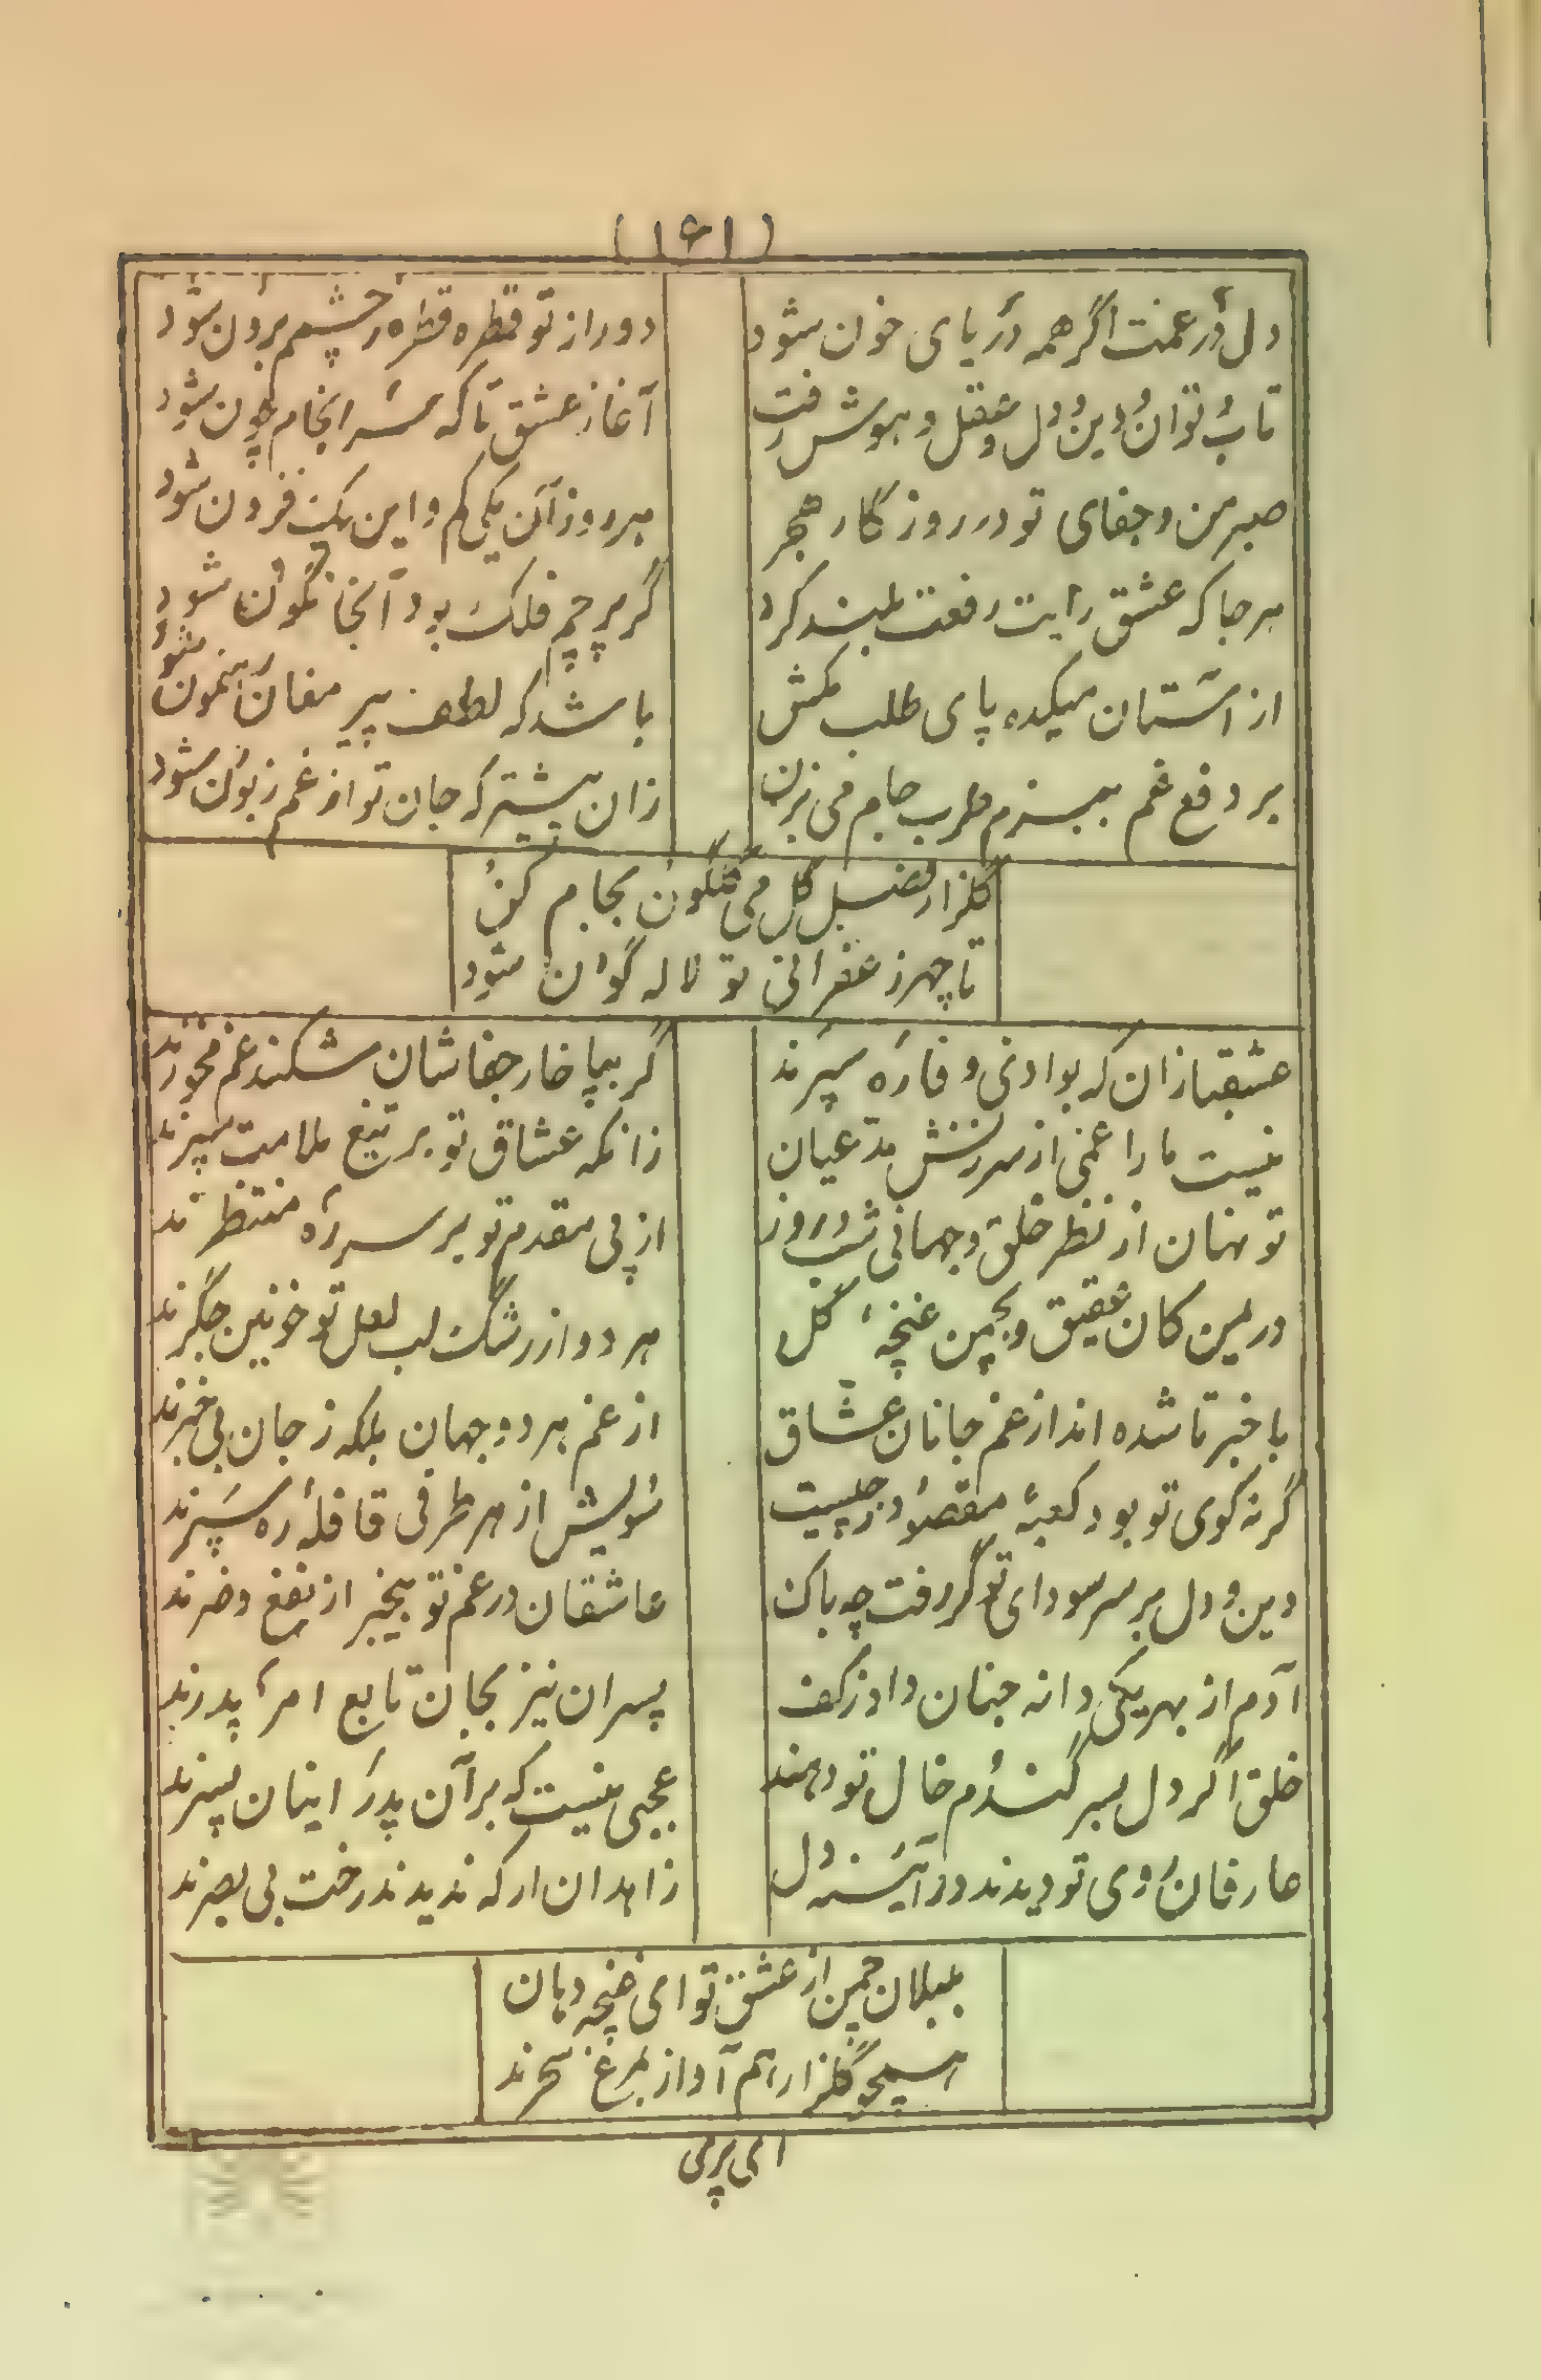 (۱۶۱)
دل در غمت اگر همه دریای خون شود
دور از تو قطره قطره ز چشمم برون شود
تاب و توان و دین و دل و عقل و هوش رفت
آغاز عشق تا که سرانجام چون شود
صبر من و جفای تو در روزگار هجر
هر روز آن یکی کم و این یک فزون شود
هر جا که عشق رایت رفعت بلند کرد
گر پرچم فلک بود آنجا نگون شود
از آستان میکده پای طلب مکش
باشد که لطف پیر مغان رهنمون شود
بر دفع غم ببزم طرب جام می بزن
زان پیشتر که جان تو از غم زبون شود
گلزار فصل گل می گلگون بجام کن
تا چهر زعفرانی تو لاله گون شود
عشقبازان که بوادی وفا ره سپرند
گر بپا خار جفاشان شکند غم نخورند
نیست ما را غمی از سرزنش مدعیان
زانکه عشاق تو بر تیغ ملامت سپرند
تو نهان از نظر خلق و جهانی شب و روز
از پی مقدم تو بر سر ره منتظرند
در یمن کان عقیق و بچمن غنچهٔ گل
هر دو از رشک لب لعل تو خونین جگرند
با خبر تا شده اند از غم جانان عشاق
از غم هر دو جهان بلکه ز جان بی خبرند
گر نه کوی تو بود کعبهٔ مقصود ز چیست
سویش از هر طرفی قافلهٔ ره سپرند
دین و دل بر سر سودای تو گر رفت چه باک
عاشقان در غم تو بیخبر از نفع و ضرند
آدم از بهر یکی دانه جنان داد ز کف
پسران نیز بجان تابع امر پدرند
خلق اگر دل بسر گندم خال تو دهند
عجبی نیست که بر آن پدر اینان پسرند
عارفان روی تو دیدند در آئینه دل
زاهدان ار که ندیدند رخت بی بصرند
بلبلان چمن از عشق تو ای غنچه دهان
همچو گلزار هم آواز بمرغ سحرند
ای پری